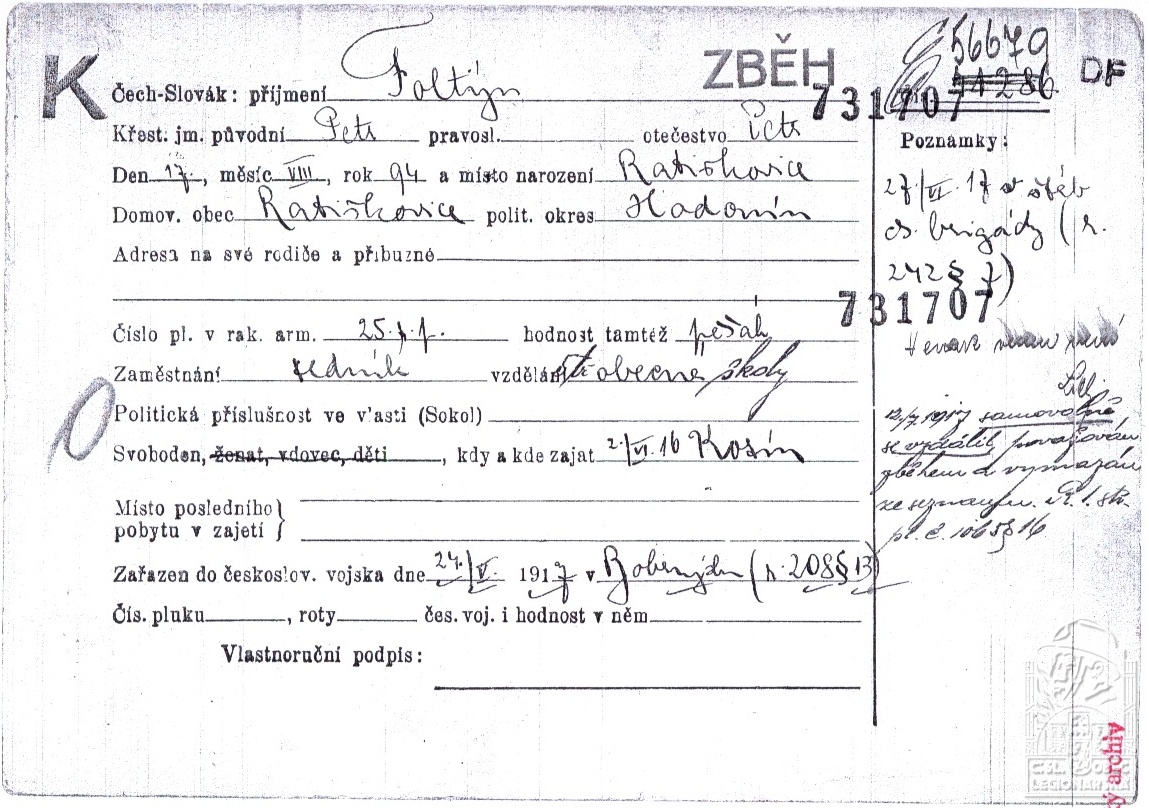 K
ZBĚH
56679
44286
DF
Čech-Slovák: příjmení Foltýn
731707
Křest. jm. původní Petr pravosl. otečestvo Petr
Poznámky:
Den 17., měsíc VIII, rok 94 a místo narození Ratiškovice
27/VI. 17 v štáb
Domov. obec Ratiškovice polit. okres Hodonín
čs. brigády (r.
Adresa na své rodiče a příbuzné
242 § 7)
731707
Číslo pl. v rak. arm. 25. p. p. hodnost tamtéž pěšák
Zaměstnání vzdělání obecné školy
Politická příslušnost ve v'asti (Sokol)
12/7. 1917 samovolně
se vzdálil, považován
Svoboden, ženat, vdovec, děti, kdy a kde zajat 2/VI. 16
zběhem a vymazán
Místo posledního
pobytu v zajetí
ze seznamu. 1. stř.
pl. č. 106 § 16
Zařazen do českoslov. vojska dne 24./V. 1917 v (r. 208 § 13)
Čís. pluku, roty čes. voj. i hodnost v něm
Vlastnoruční podpis:
ČSL. OBEC
LEGIONÁŘSKÁ
archiv